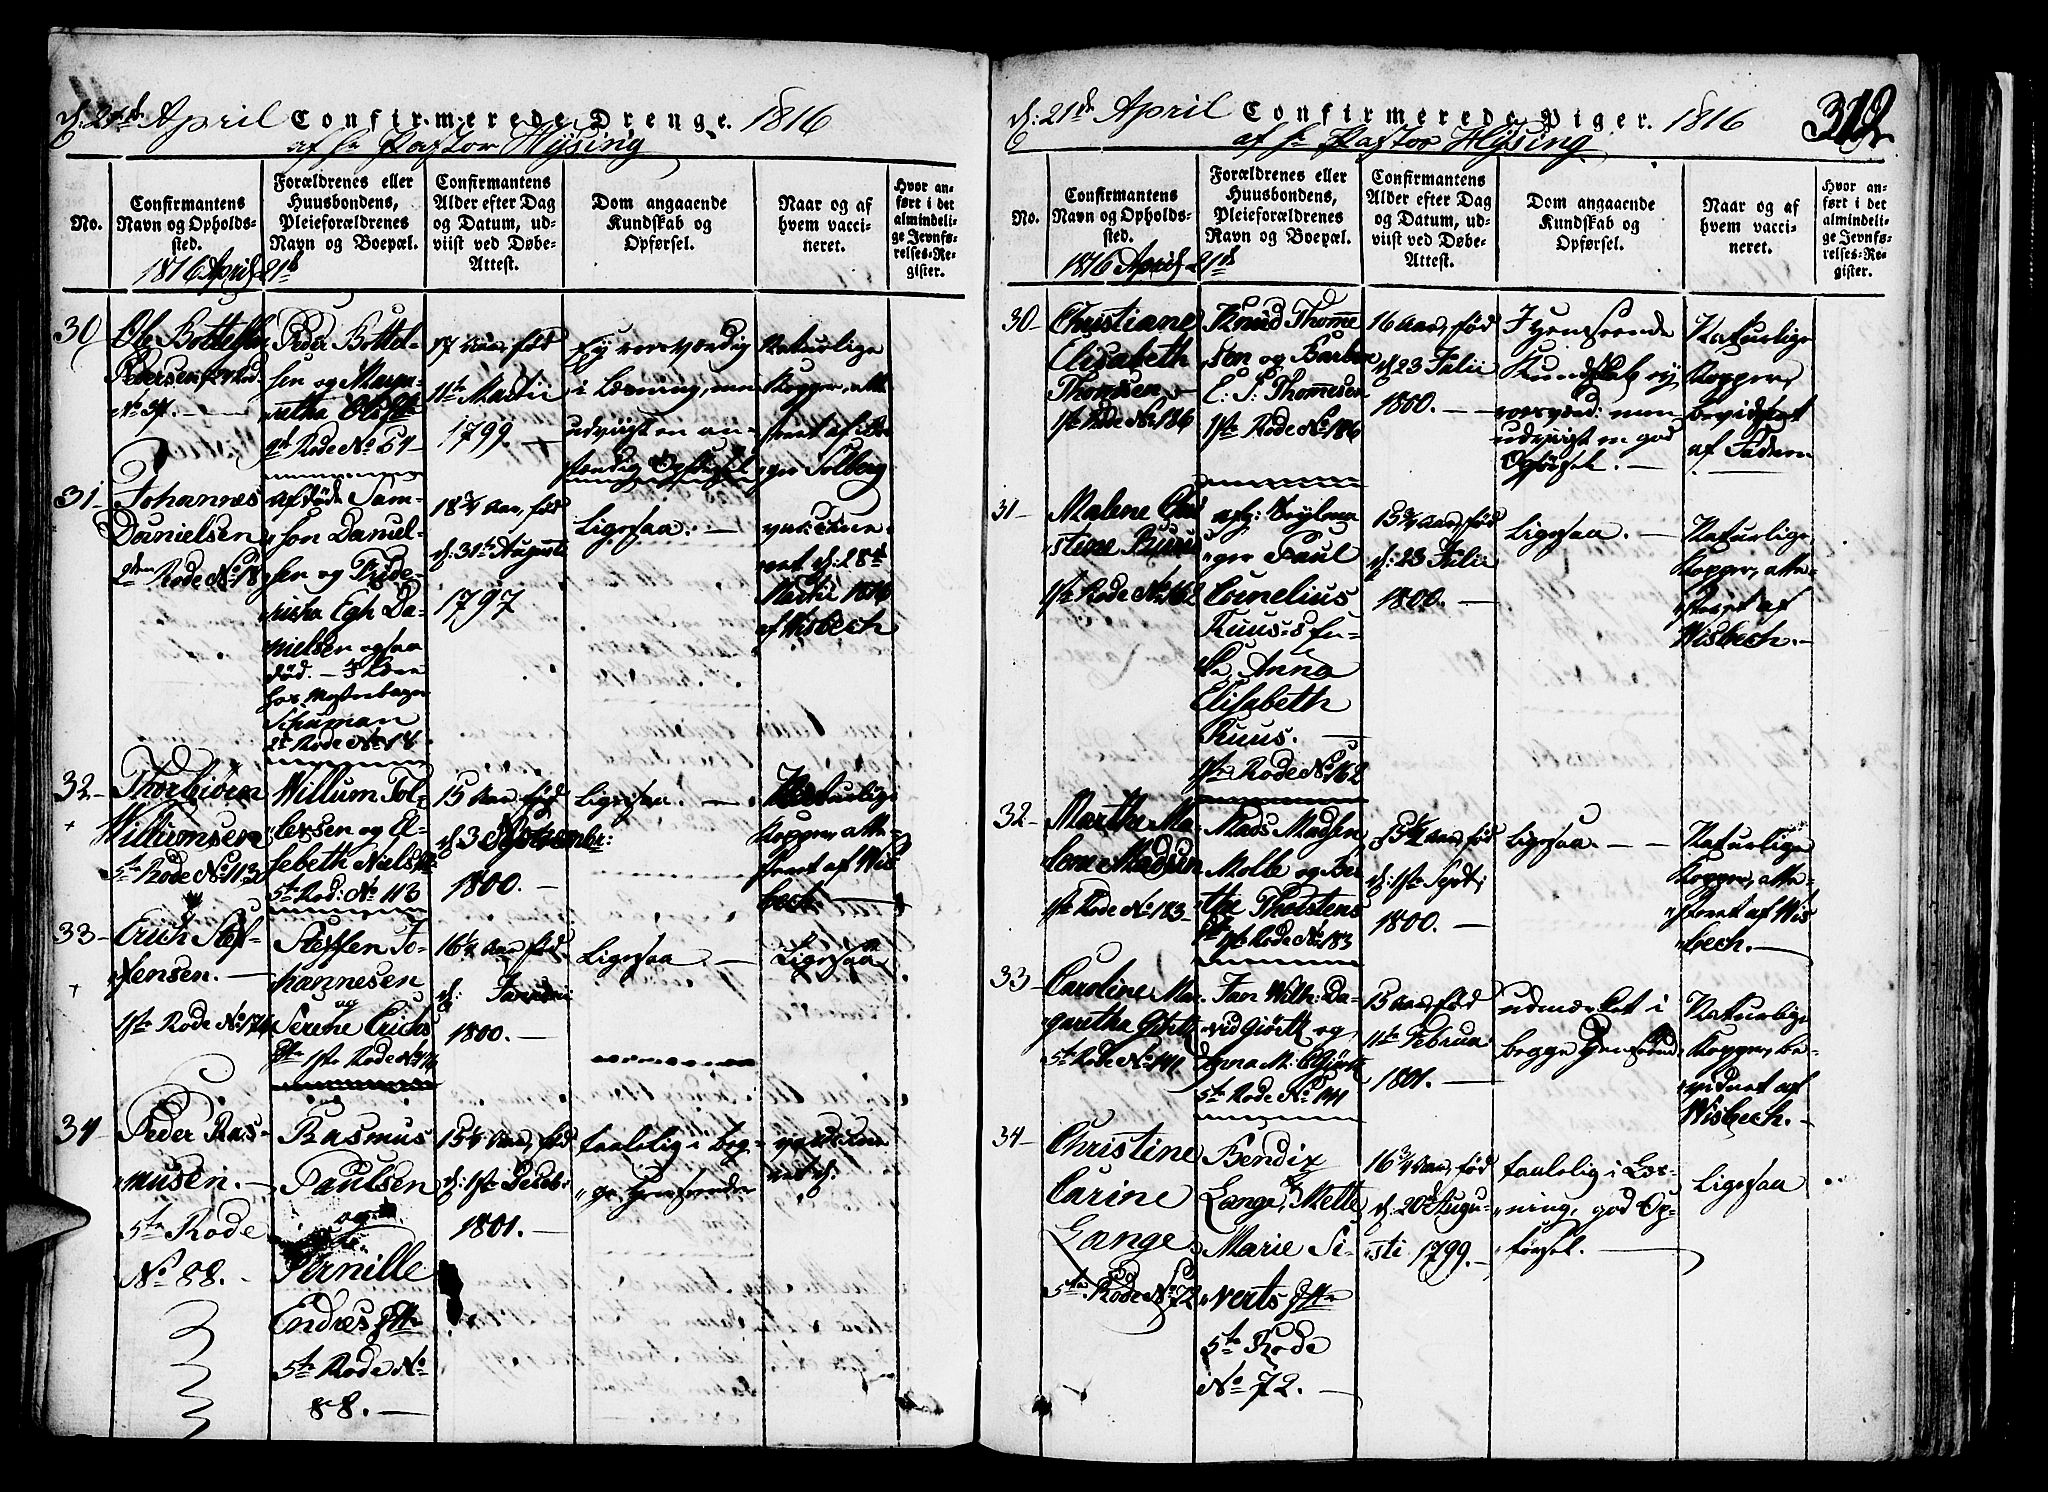 d: 21de April Confirmerede Drenge. 1816
af Hr Pastor Hysing
No.
Confirmantens Navn og Opholdssted.
1816 April 21d
Forældrenes eller Huusbondens, Pleieforældrenes Navn og Boepæl.
Confirmantens Alder efter Dag og Datum, udviist ved Døbe-Attest.
Dom angaaende Kundskab og Opførsel.
Naar og af hvem vaccineret.
Hvor anført i det almindelige Jevnførelses-Register.
30
Ole Bottelsen
Pedersen
No 37.
Peder Bottel-
sen og Marga-
retha
Rode No 64
17 Aar, fød
11te Martii
1799.
Ey
i Læsning, men
udviist en an-
stændig Opførsel
Naturlige
Kopper, atte-
steret af
Solberg
31
Johannes
Danielsen
2den Rode No 18
afdøde Sam-
son Daniel-
sen og Fride-
richa Egh Da-
nielsen ogsaa
død.
hos
Schuman
2d Rode No 18
18 3/4 Aar, fød
d: 31te Augusti
1797
Ligesaa.
vaccine-
ret d: 28de
Martii 1816
af Wisbech
32
Thorbiørn
Willumsen
5te Rode No 113
Willum Tol-
lersen og El-
sebeth Nielsdtr
5te Rod: No 113
15 Aar, fød
d: 3 Novembr:
1800.
Ligesaa.
Naturlige
Kopper, atte-
steret af Wis
bech.
33
Erich Stef-
fensen.
1ste Rode No 176
Steffen Jo-
hannesen
og
Serene Erichs
1ste Rode No 176
16 1/4 Aar, fød
d: Januari
1800.
Ligesaa.
Ligesaa
34
Peder Ras-
musen.
5te Rode
No 88.
Rasmus
Paulsen
og
Pernille
Endres
5te Rode No
88.
15 1/4 Aar, fød
d: 1ste Deceb:
1801.
taalelig i beg-
ge Henseender
vaccine-
ret d:
d: 21de April Confirmerede Piger. 1816
312
af Hr Pastor Hysing
No.
Confirmantens Navn og Opholdssted.
1816 April 21d
Forældrenes eller Huusbondens, Pleieforældrenes Navn og Boepæl.
Confirmantens Alder efter Dag og Datum, udviist ved Døbe-Attest.
Dom angaaende Kundskab og Opførsel.
Naar og af hvem vaccineret.
Hvor anført i det almindelige Jevnførelses-Register.
30
Christiane
Elisabeth
Thomsen
1ste Rode No 186
Knud Thome
sen og Barbra
E: S: Thomesen
1ste Rode No 186
16 Aar, fød
d: 23 Julii
1800.
I Henseende
Kundskab ey
men
udviist en god
Opførsel.
Naturlige
Kopper,
bevidnet
af Faderen
31
Malene Chri
stiane Ruus
1ste Rode No 162
afg:
ger Paul
Cornelius
Ruus's En-
ke, Anna
Elisabeth
Ruus.
1ste Rode No 162
15 3/4 Aar, fød
d: 23 Julii
1800.
Ligesaa.
Naturlige
Kopper, atte-
steret af
Wisbech.
32
Martha Ma-
lene Madsen
1ste Rode No 183
Mads Madsen
Molbe og Ber
the Thorstens
1ste Rode No 183
15 1/2 Aar, fød
d: 1ste Septr:
1800.
Ligesaa.
Naturlige
Kopper, atte-
steret af Wis
bech.
33
Caroline Mar-
garetha Giørtz
5te Rode No 141
Jan Wilh: Da-
vid Giørtz og
Anna M: Giørtz
5te Rode No 141
15 Aar, fød
11te Februa
1801.
udmærket i
begge Henseender
Naturlige
Kopper, be-
vidnet af
Wisbech.
34
Christine
Carine
Lange
5te Rode No 72
Bendix
Lange, & Mette
Marie Si-
verts
5te Rode
No 72.
16 3/4 Aar, fød
d: 20de Augu-
sti 1799.
taalelig i Læs-
ning, god Op-
førsel.
Ligesaa